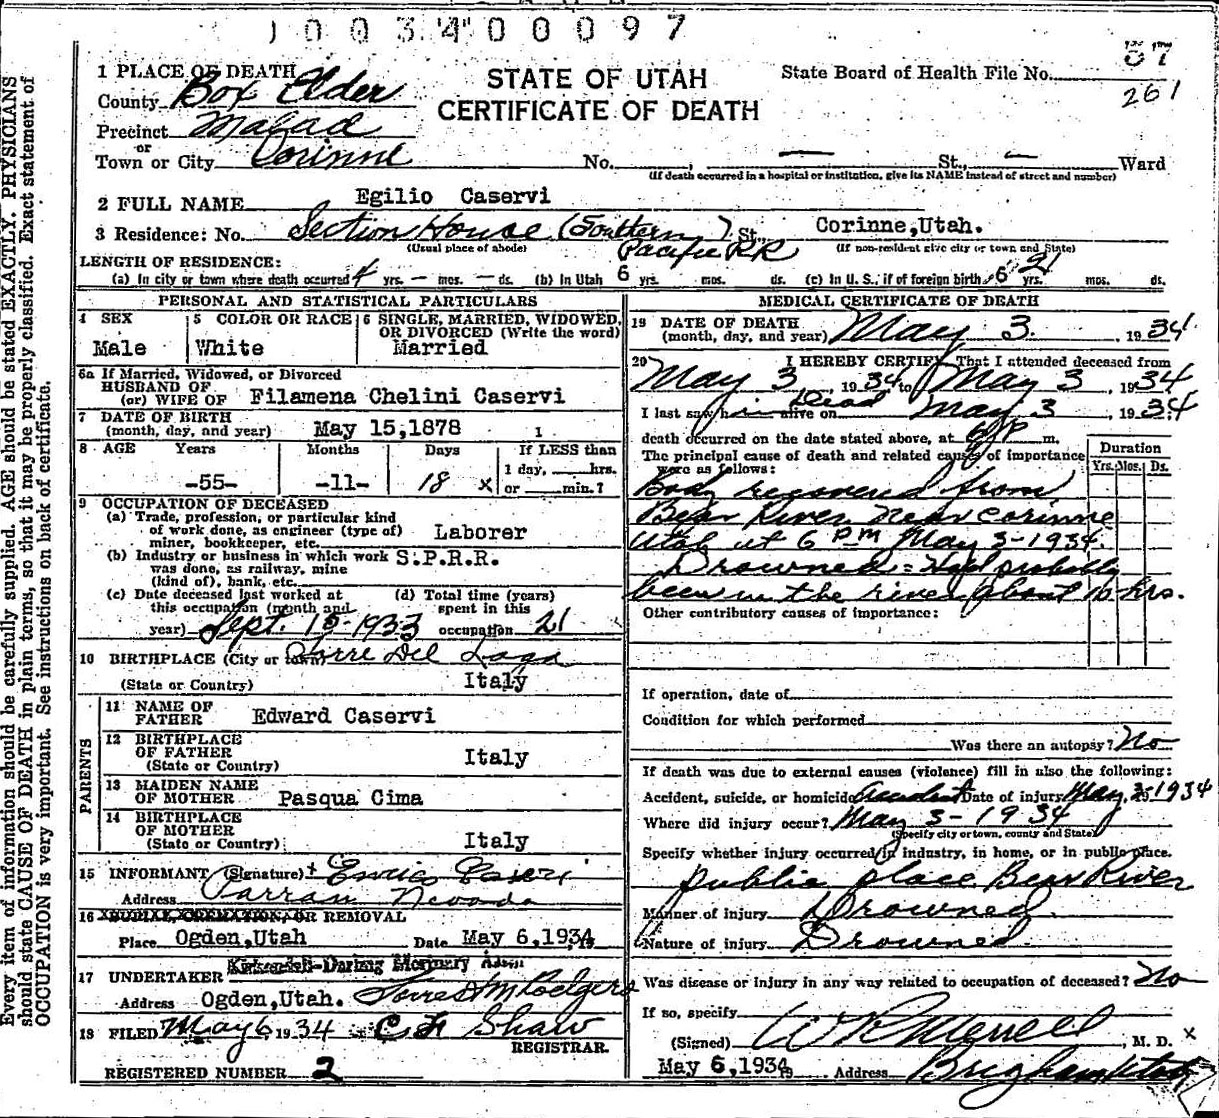 1 0 0 3 4 0 0 0 9 7
STATE OF UTAH
CERTIFICATE OF DEATH
State Board of Health File No. 57
261
1 PLACE OF DEATH
County Box Elder
Precinct Malad
or
Town or City Corinne No. , — St., — Ward
(If death occurred in a hospital or institution, give its NAME instead of street and number)
2 FULL NAME Egilio Caservi
3 Residence: No. Section House (Southern Pacific RR) St. Corinne, Utah.
(Usual place of abode) (If non-resident give city or town and State)
LENGTH OF RESIDENCE:
(a) In city or town where death occurred 4 yrs. — mos. — ds. (b) In Utah 6 yrs. mos. ds. (c) In U. S., if of foreign birth 21 yrs. mos. ds.
PERSONAL AND STATISTICAL PARTICULARS
4 SEX
Male
5 COLOR OR RACE
White
6 SINGLE, MARRIED, WIDOWED,
OR DIVORCED (Write the word)
Married
6a If Married, Widowed, or Divorced
HUSBAND OF
(or) WIFE OF Filamena Chelini Caservi
7 DATE OF BIRTH
(month, day, and year) May 15,1878
8 AGE Years Months Days If LESS than
1 day, hrs.
-55- -11- 18 x or min.?
9 OCCUPATION OF DECEASED
(a) Trade, profession, or particular kind
of work done, as engineer (type of)
miner, bookkeeper, etc. Laborer
(b) Industry or business in which work S.P.R.R.
was done, as railway, mine
(kind of), bank, etc.
(c) Date deceased last worked at
this occupation (month and
year) Sept. 15-1933
(d) Total time (years)
spent in this
occupation 21
10 BIRTHPLACE (City or town) Torre Del Lago
(State or Country) Italy
PARENTS
11 NAME OF
FATHER Edward Caservi
12 BIRTHPLACE
OF FATHER
(State or Country) Italy
13 MAIDEN NAME
OF MOTHER Pasqua Cima
14 BIRTHPLACE
OF MOTHER
(State or Country) Italy
15 INFORMANT (Signature)
Address Parran Nevada
16 BURIAL, CREMATION, OR REMOVAL
Place Ogden,Utah Date May 6,1934
17 UNDERTAKER
Address Ogden,Utah.
18 FILED May 6 1934 C F Shaw
REGISTRAR.
REGISTERED NUMBER 2
MEDICAL CERTIFICATE OF DEATH
19 DATE OF DEATH
(month, day, and year) May 3. , 1934.
20 I HEREBY CERTIFY, That I attended deceased from
May 3 , 1934 to May 3 , 1934
I last saw him alive on Dead May 3 , 1934
death occurred on the date stated above, at m.
The principal cause of death and related causes of importance
were as follows:
Duration
Yrs. Mos. Ds.
Body recovered from
Bear River near Corinne
Utah at 6 PM May 3-1934.
Drowned = Had probably
been in the river about 10 hrs.
Other contributory causes of importance:
If operation, date of
Condition for which performed
Was there an autopsy? No
If death was due to external causes (violence) fill in also the following:
Accident, suicide, or homicide Accident Date of injury May, 3-1934
Where did injury occur? May 3-1934
(Specify city or town, county and State)
Specify whether injury occurred in industry, in home, or in public place.
public place Bear River
Manner of injury Drowned.
Nature of injury Drowned
Was disease or injury in any way related to occupation of deceased? No
If so, specify
(Signed) W R Merrell , M. D. x
May 6,1934 Address Brigham Utah
Every item of information should be carefully supplied. AGE should be stated EXACTLY. PHYSICIANS
should state CAUSE OF DEATH in plain terms, so that it may be properly classified. Exact statement of
OCCUPATION is very important. See instructions on back of certificate.